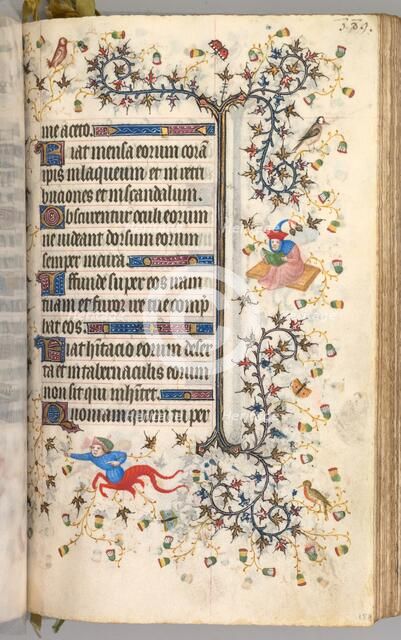 me aceto.
Fiat mensa eorum corā
ipīs in laqueum et in retri
buciones et in scandalum.
Obscurentur oculi eorum
ne uideant dorsum eorum
semper incurua.
Effunde super eos iram
tuam et furor ire tue comp
hat eos.
Fiat habitacio eorum deser
ta et in tabernaculis eorum
non sit qui inhitet.
Quoniam quem tu per